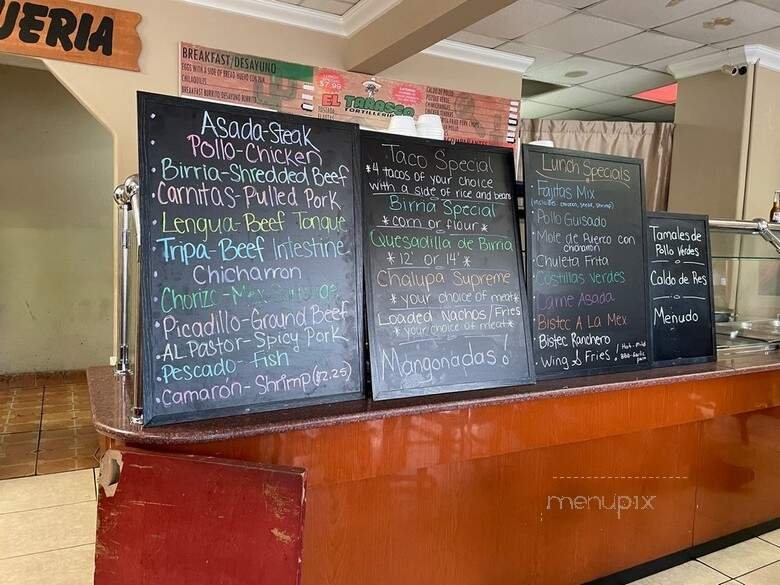 UERIA
BREAKFAST/DESAYUNO
EGGS WITH A SIDE OF BREAD
CHILAQUILES
BREAKFAST BURRITO/DESAYUNO BURRITO
EL TARASCO
TORTILLERIA
Asada-Steak
Pollo-Chicken
• Birria-Shredded Beef
• Carnitas-Pulled Pork
Lengua-Beef Tongue
• Tripa-Beef Intestine
• Chicharron
• Chorizo-Mex Sausage
• Picadillo-Ground Beef
• AL Pastor-Spicy Pork
• Pescado-Fish
• Camarón-Shrimp ($2.25)
Taco Special
*4 tacos of your choice
with a side of rice and beans
Birria Special
* corn or flour *
Quesadilla de Birria
* 12" or 14" *
Chalupa Supreme
* your choice of meat *
Loaded Nachos/Fries
* your choice of meat *
Mangonadas!
Lunch Specials
• Fajitas Mix
(includes chicken, steak, shrimp)
• Pollo Guisado
• Mole de Puerco con
chicharron
• Chuleta Frita
• Costillas Verdes
• Carne Asada
• Bistec A La Mex
• Bistec Ranchero
• Wing & Fries / Hot-Mild
BBQ-Garlic
Tamales de
Pollo Verdes
Caldo de Res
Menudo
menupix